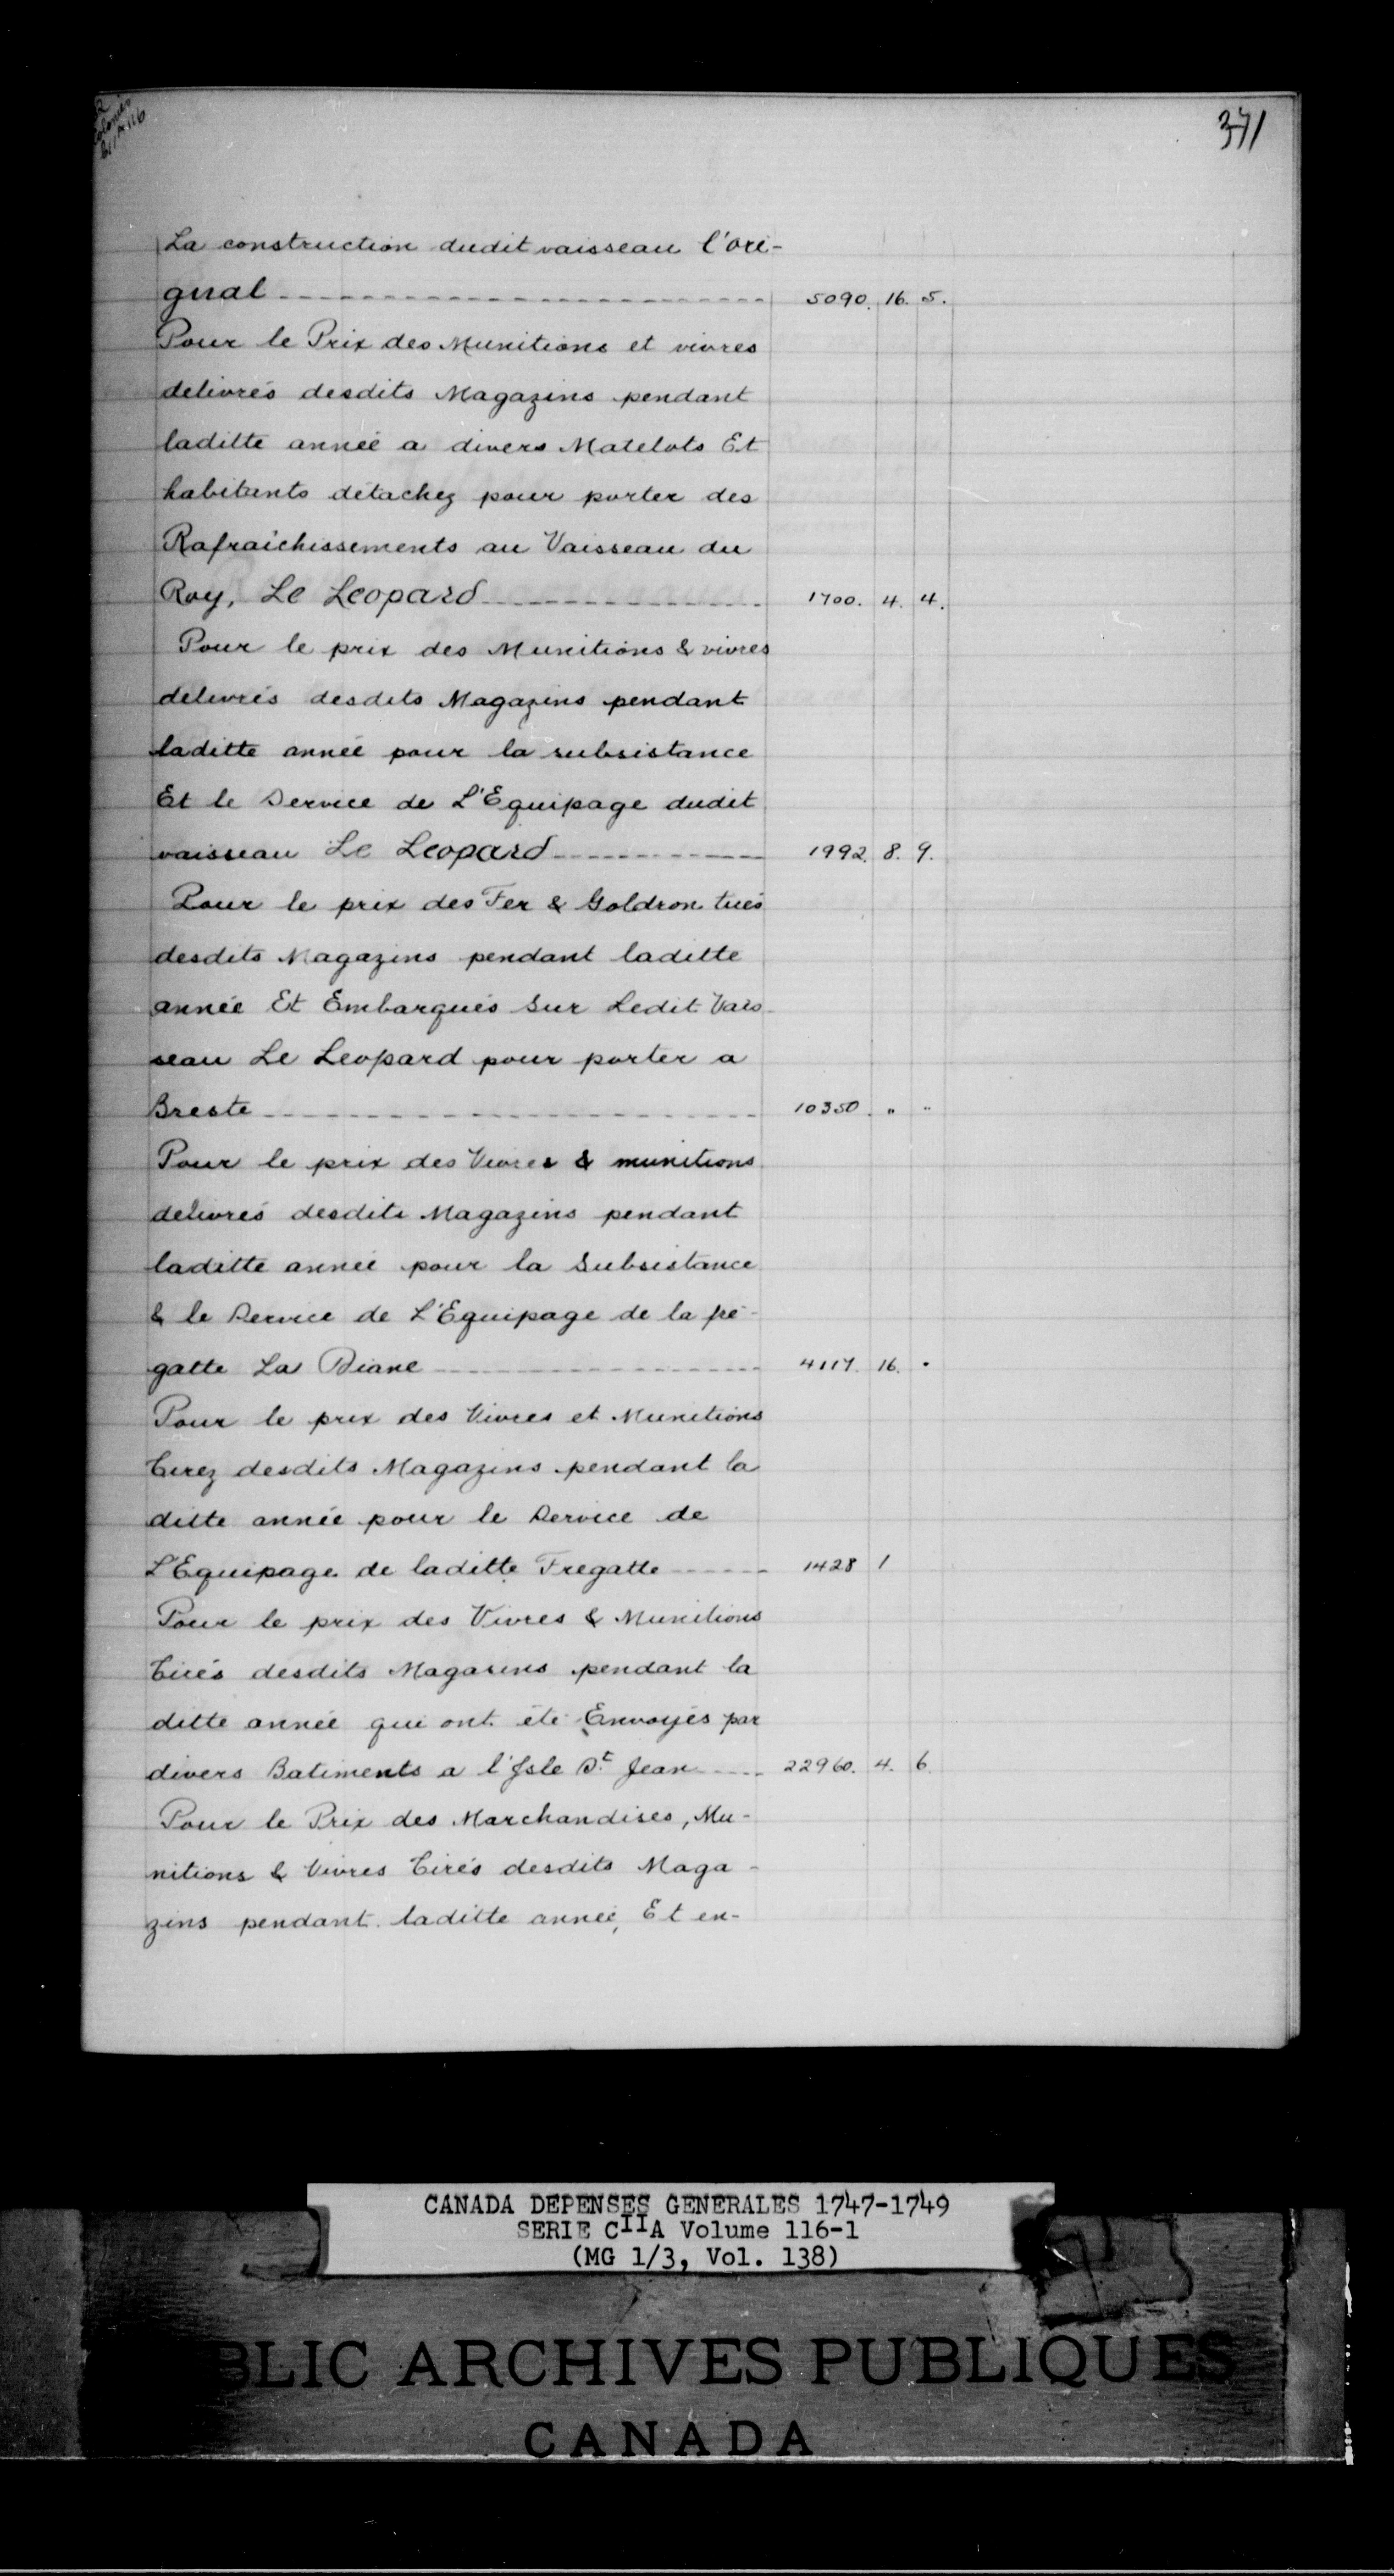 371
La construction dudit vaisseau l'ori-
gnal 5090. 16. 5.
Pour le Prix des Munitions et vivres
delivrés desdits Magazins pendant
laditte année a divers Matelots Et
habitants détachez pour porter des
Rafraichissements au Vaisseau du
Roy, Le Leopard 1700. 4. 4.
Pour le prix des Munitions & vivres
delivrés desdits Magazins pendant
laditte année pour la subsistance
Et le Service de L'Equipage dudit
vaisseau Le Leopard 1992. 8. 9.
Pour le prix des Fer & Goldron tirés
desdits Magazins pendant laditte
année Et Embarqués Sur Ledit Vais-
seau Le Leopard pour porter a
Breste 10350. " "
Pour le prix des Vivres & munitions
delivrés desdits Magazins pendant
laditte année pour la Subsistance
& le Service de L'Equipage de la fré-
gatte La Diane 4117. 16. "
Pour le prix des Vivres et Munitions
tirez desdits Magazins pendant la
ditte année pour le Service de
L'Equipage de laditte Fregatte 1428 1
Pour le prix des Vivres & Munitions
tirés desdits Magasins pendant la
ditte année qui ont été Envoyés par
divers Batiments a l'Isle St. Jean 22960. 4. 6.
Pour le Prix des Marchandises, Mu-
nitions & Vivres tirés desdits Maga-
zins pendant laditte année, Et en-
CANADA DEPENSES GENERALES 1747-1749
SERIE CIIA Volume 116-1
(MG 1/3, Vol. 138)
BLIC ARCHIVES PUBLIQUES
CANADA